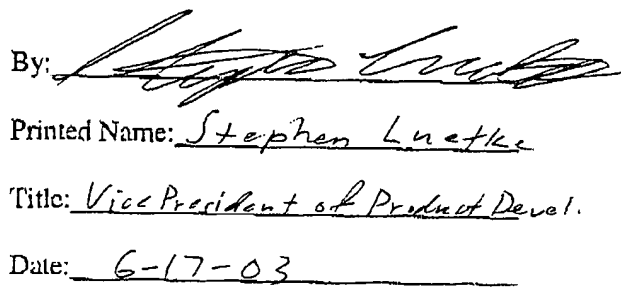 By: Stephen Luetke
Printed Name: Stephen Luetke
Title: Vice President of Product Devel.
Date: 6-17-03